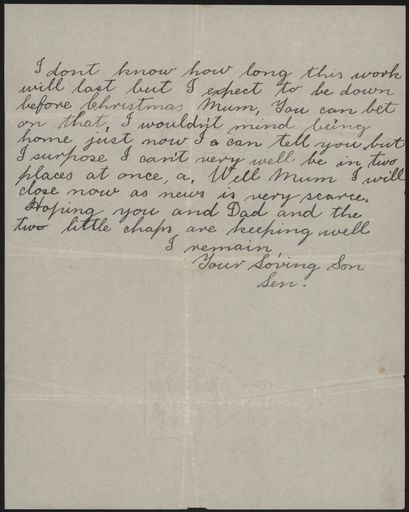 I dont know how long this work
will last but I expect to be down
before Christmas Mum, You can bet
on that, I wouldn't mind being
home just now I a can tell you, but
I surpose I can't very well be in two
places at once, a. Well Mum I will
close now as news is very scarce.
Hoping you and Dad and the
two little chaps are keeping well
I remain
Your Loving Son
Len.